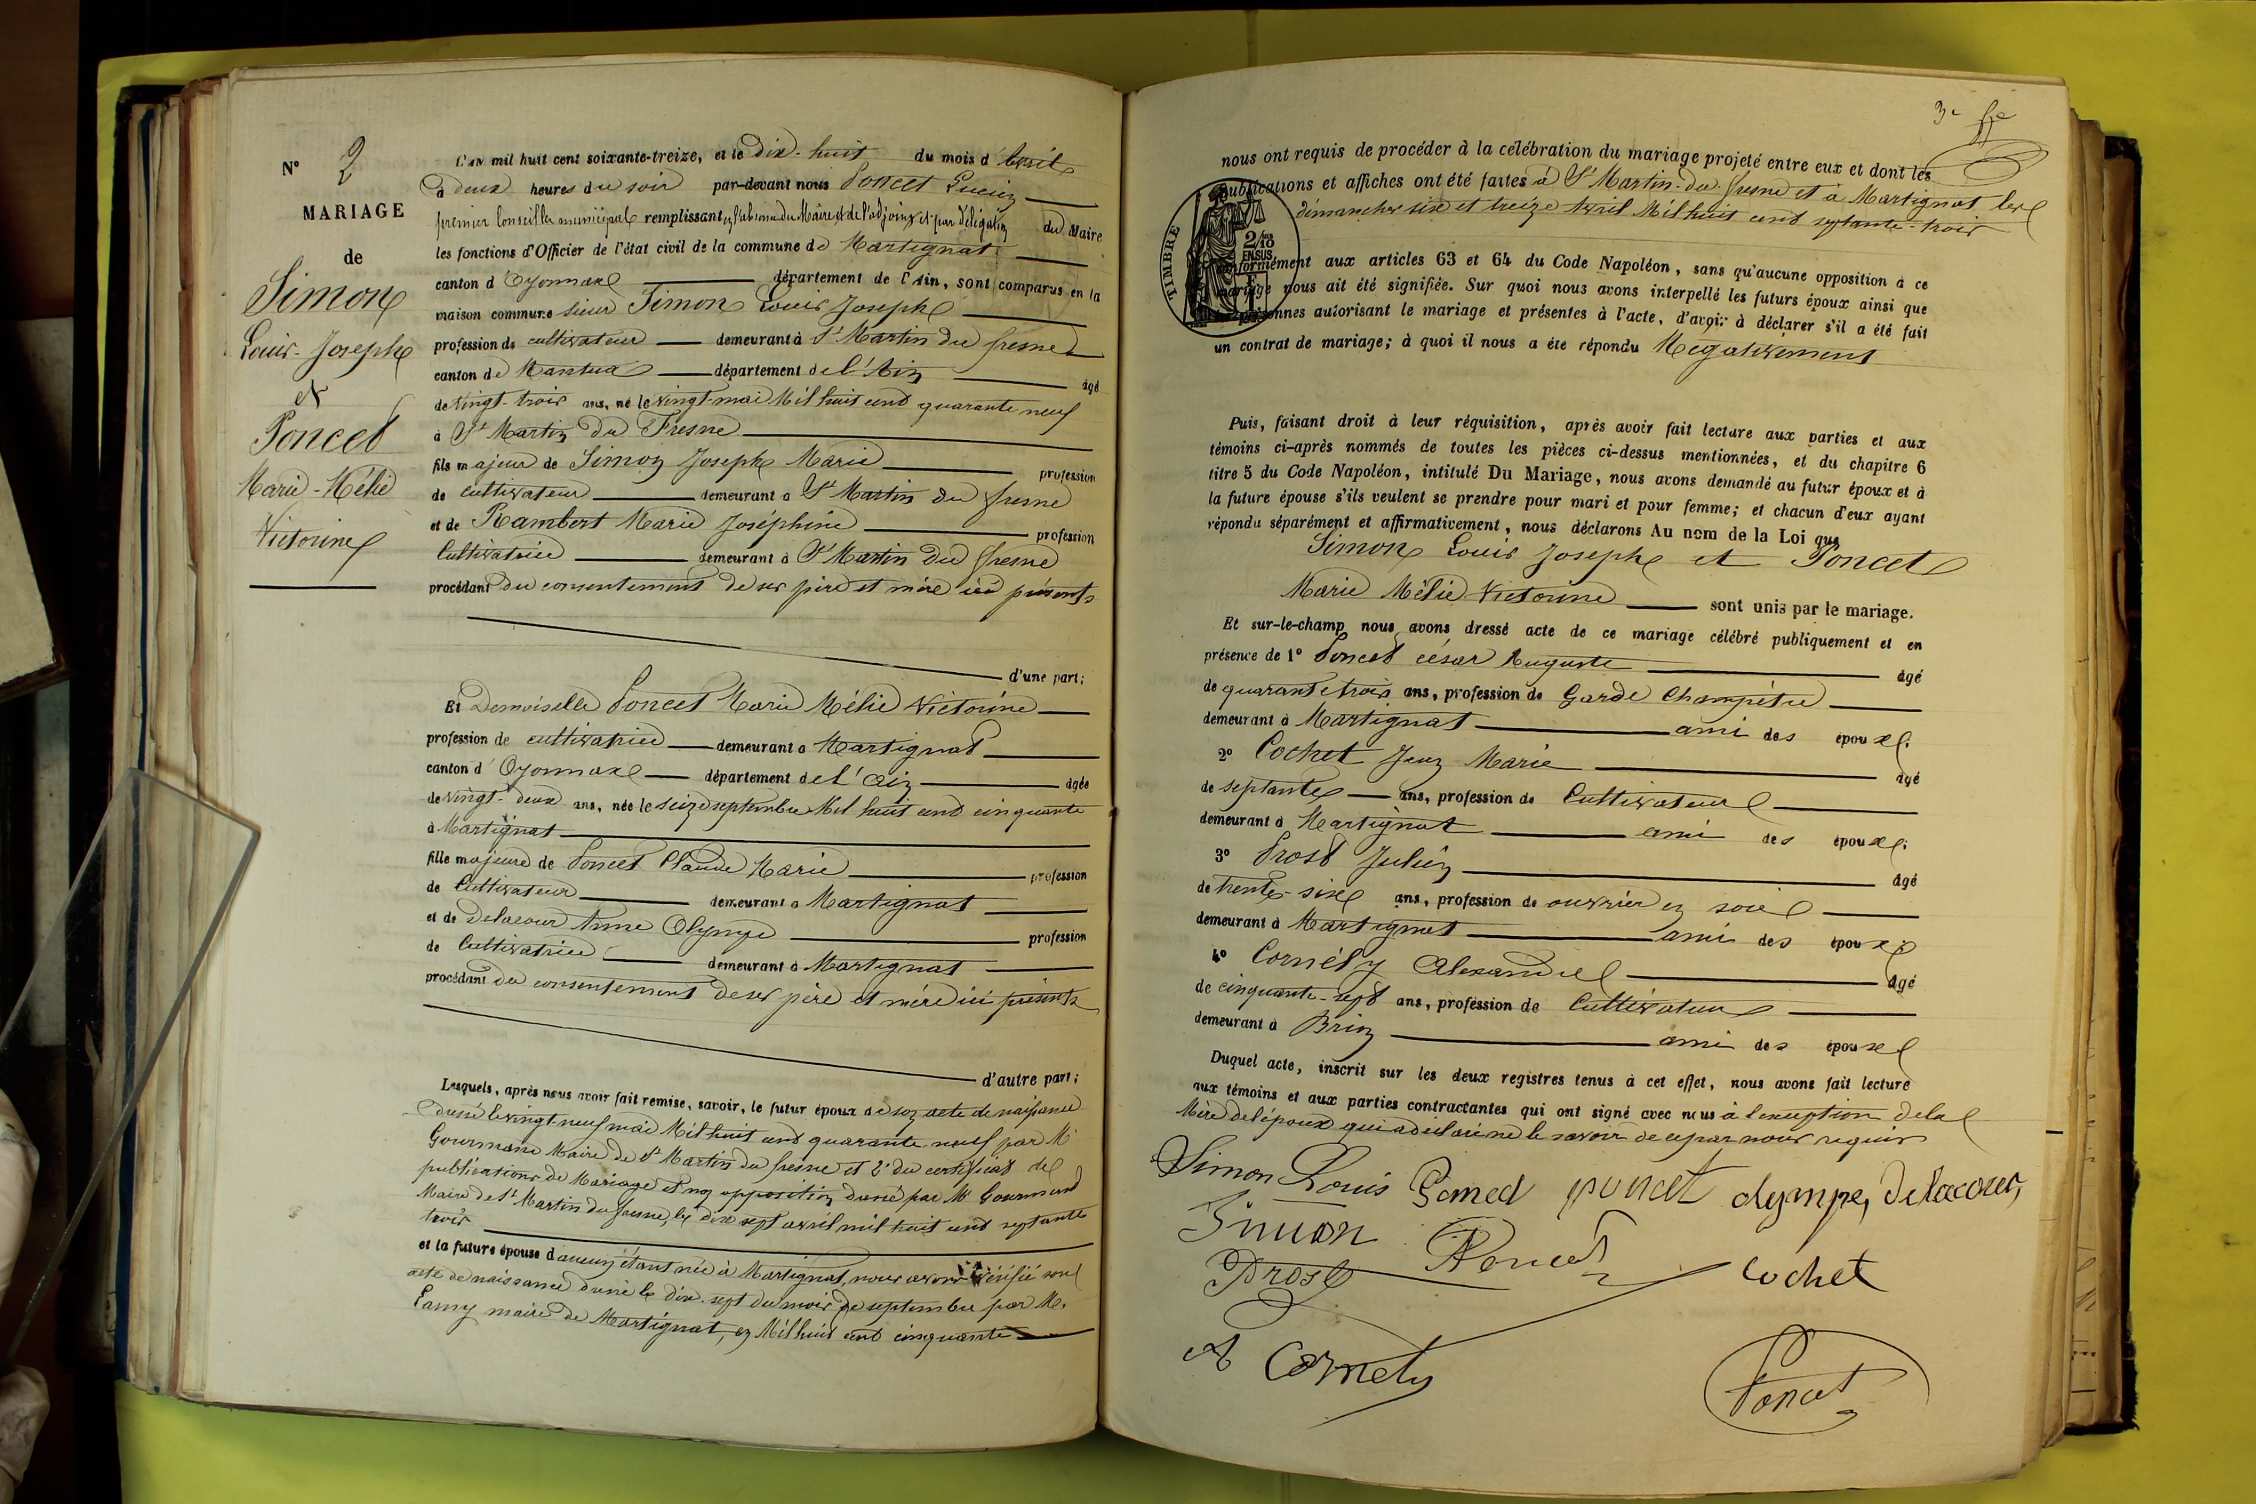 N° 2
MARIAGE
de
Simon
Louis-Joseph
et
Poncet
Marie-Mélie
Victorine
L'an mil huit cent soixante-treize, et le dix-huit du mois d'Avril
à deux heures du soir par-devant nous Poncet Lucien
premier Conseiller municipal remplissant en l'absence du Maire et de l'adjoint et par délégation du Maire
les fonctions d'Officier de l'état civil de la commune de Martignat
canton d'Oyonnax département de l'Ain, sont comparus en la
maison commune sieur Simon Louis Joseph
profession de cultivateur demeurant à St Martin du fresne
canton de Nantua département de l'Ain âgé
de vingt-trois ans, né le vingt-mai Mil huit cent quarante neuf
à St Martin du Fresne
fils majeur de Simon Joseph Marie profession
de cultivateur demeurant à St Martin du fresne
et de Rambert Marie Joséphine profession
Cultivatrice demeurant à St Martin du fresne
procédant du consentement de ses père et mère ici présents
d'une part;
Et Demoiselle Poncet Marie Mélie Victorine
profession de cultivatrice demeurant à Martignat
canton d'Oyonnax département de l'Ain âgée
de vingt-deux ans, née le seize septembre Mil huit cent cinquante
à Martignat
fille majeure de Poncet Claude Marie profession
de Cultivateur demeurant à Martignat
et de Delacour Anne Olympe profession
de Cultivatrice demeurant à Martignat
procédant du consentement de ses père et mère ici présents
d'autre part;
Lesquels, après nous avoir fait remise, savoir, le futur époux de son acte de naissance
dressé le vingt neuf mai Mil huit cent quarante neuf par Mr
Gourmand Maire de St Martin du fresne et 2° du certificat de
publications de Mariage et non opposition donné par Mr Gourmand
Maire de St Martin du fresne, le dix sept avril mil huit cent septante
trois
et la future épouse d'aucun étant née à Martignat, nous avons vérifié son
acte de naissance donné le dix-sept du mois de septembre par M.
Lamy maire de Martignat, en Mil huit cent cinquante
nous ont requis de procéder à la célébration du mariage projeté entre eux et dont les
publications et affiches ont été faites à St Martin-du-fresne et à Martignat les
dimanches six et treize Avril Mil huit cent septante-trois
TIMBRE
2/10
EN SUS
conformément aux articles 63 et 64 du Code Napoléon, sans qu'aucune opposition à ce
mariage nous ait été signifiée. Sur quoi nous avons interpellé les futurs époux ainsi que
les personnes autorisant le mariage et présentes à l'acte, d'avoir à déclarer s'il a été fait
un contrat de mariage; à quoi il nous a été répondu Négativement
Puis, faisant droit à leur réquisition, après avoir fait lecture aux parties et aux
témoins ci-après nommés de toutes les pièces ci-dessus mentionnées, et du chapitre 6
titre 5 du Code Napoléon, intitulé Du Mariage, nous avons demandé au futur époux et à
la future épouse s'ils veulent se prendre pour mari et pour femme; et chacun d'eux ayant
répondu séparément et affirmativement, nous déclarons Au nom de la Loi que
Simon Louis Joseph et Poncet
Marie Mélie Victorine sont unis par le mariage.
Et sur-le-champ nous avons dressé acte de ce mariage célébré publiquement et en
présence de 1° Poncet césar Auguste âgé
de quarante trois ans, profession de Garde Champêtre
demeurant à Martignat ami des époux;
2° Cochet Jean Marie âgé
de septante ans, profession de Cultivateur
demeurant à Martignat ami des époux;
3° Prost Julien âgé
de trente-six ans, profession de ouvrier en soie
demeurant à Martignat ami des époux;
4° Cornély Alexandre âgé
de cinquante-sept ans, profession de Cultivateur
demeurant à Brion ami des époux
Duquel acte, inscrit sur les deux registres tenus à cet effet, nous avons fait lecture
aux témoins et aux parties contractantes qui ont signé avec nous à l'exception de la
Mère de l'époux qui a déclaré ne le savoir de ce par nous requis
Simon Louis poncet olympe, Delacour,
Simon Poncet
Prost Cochet
A Cornely
Poncet